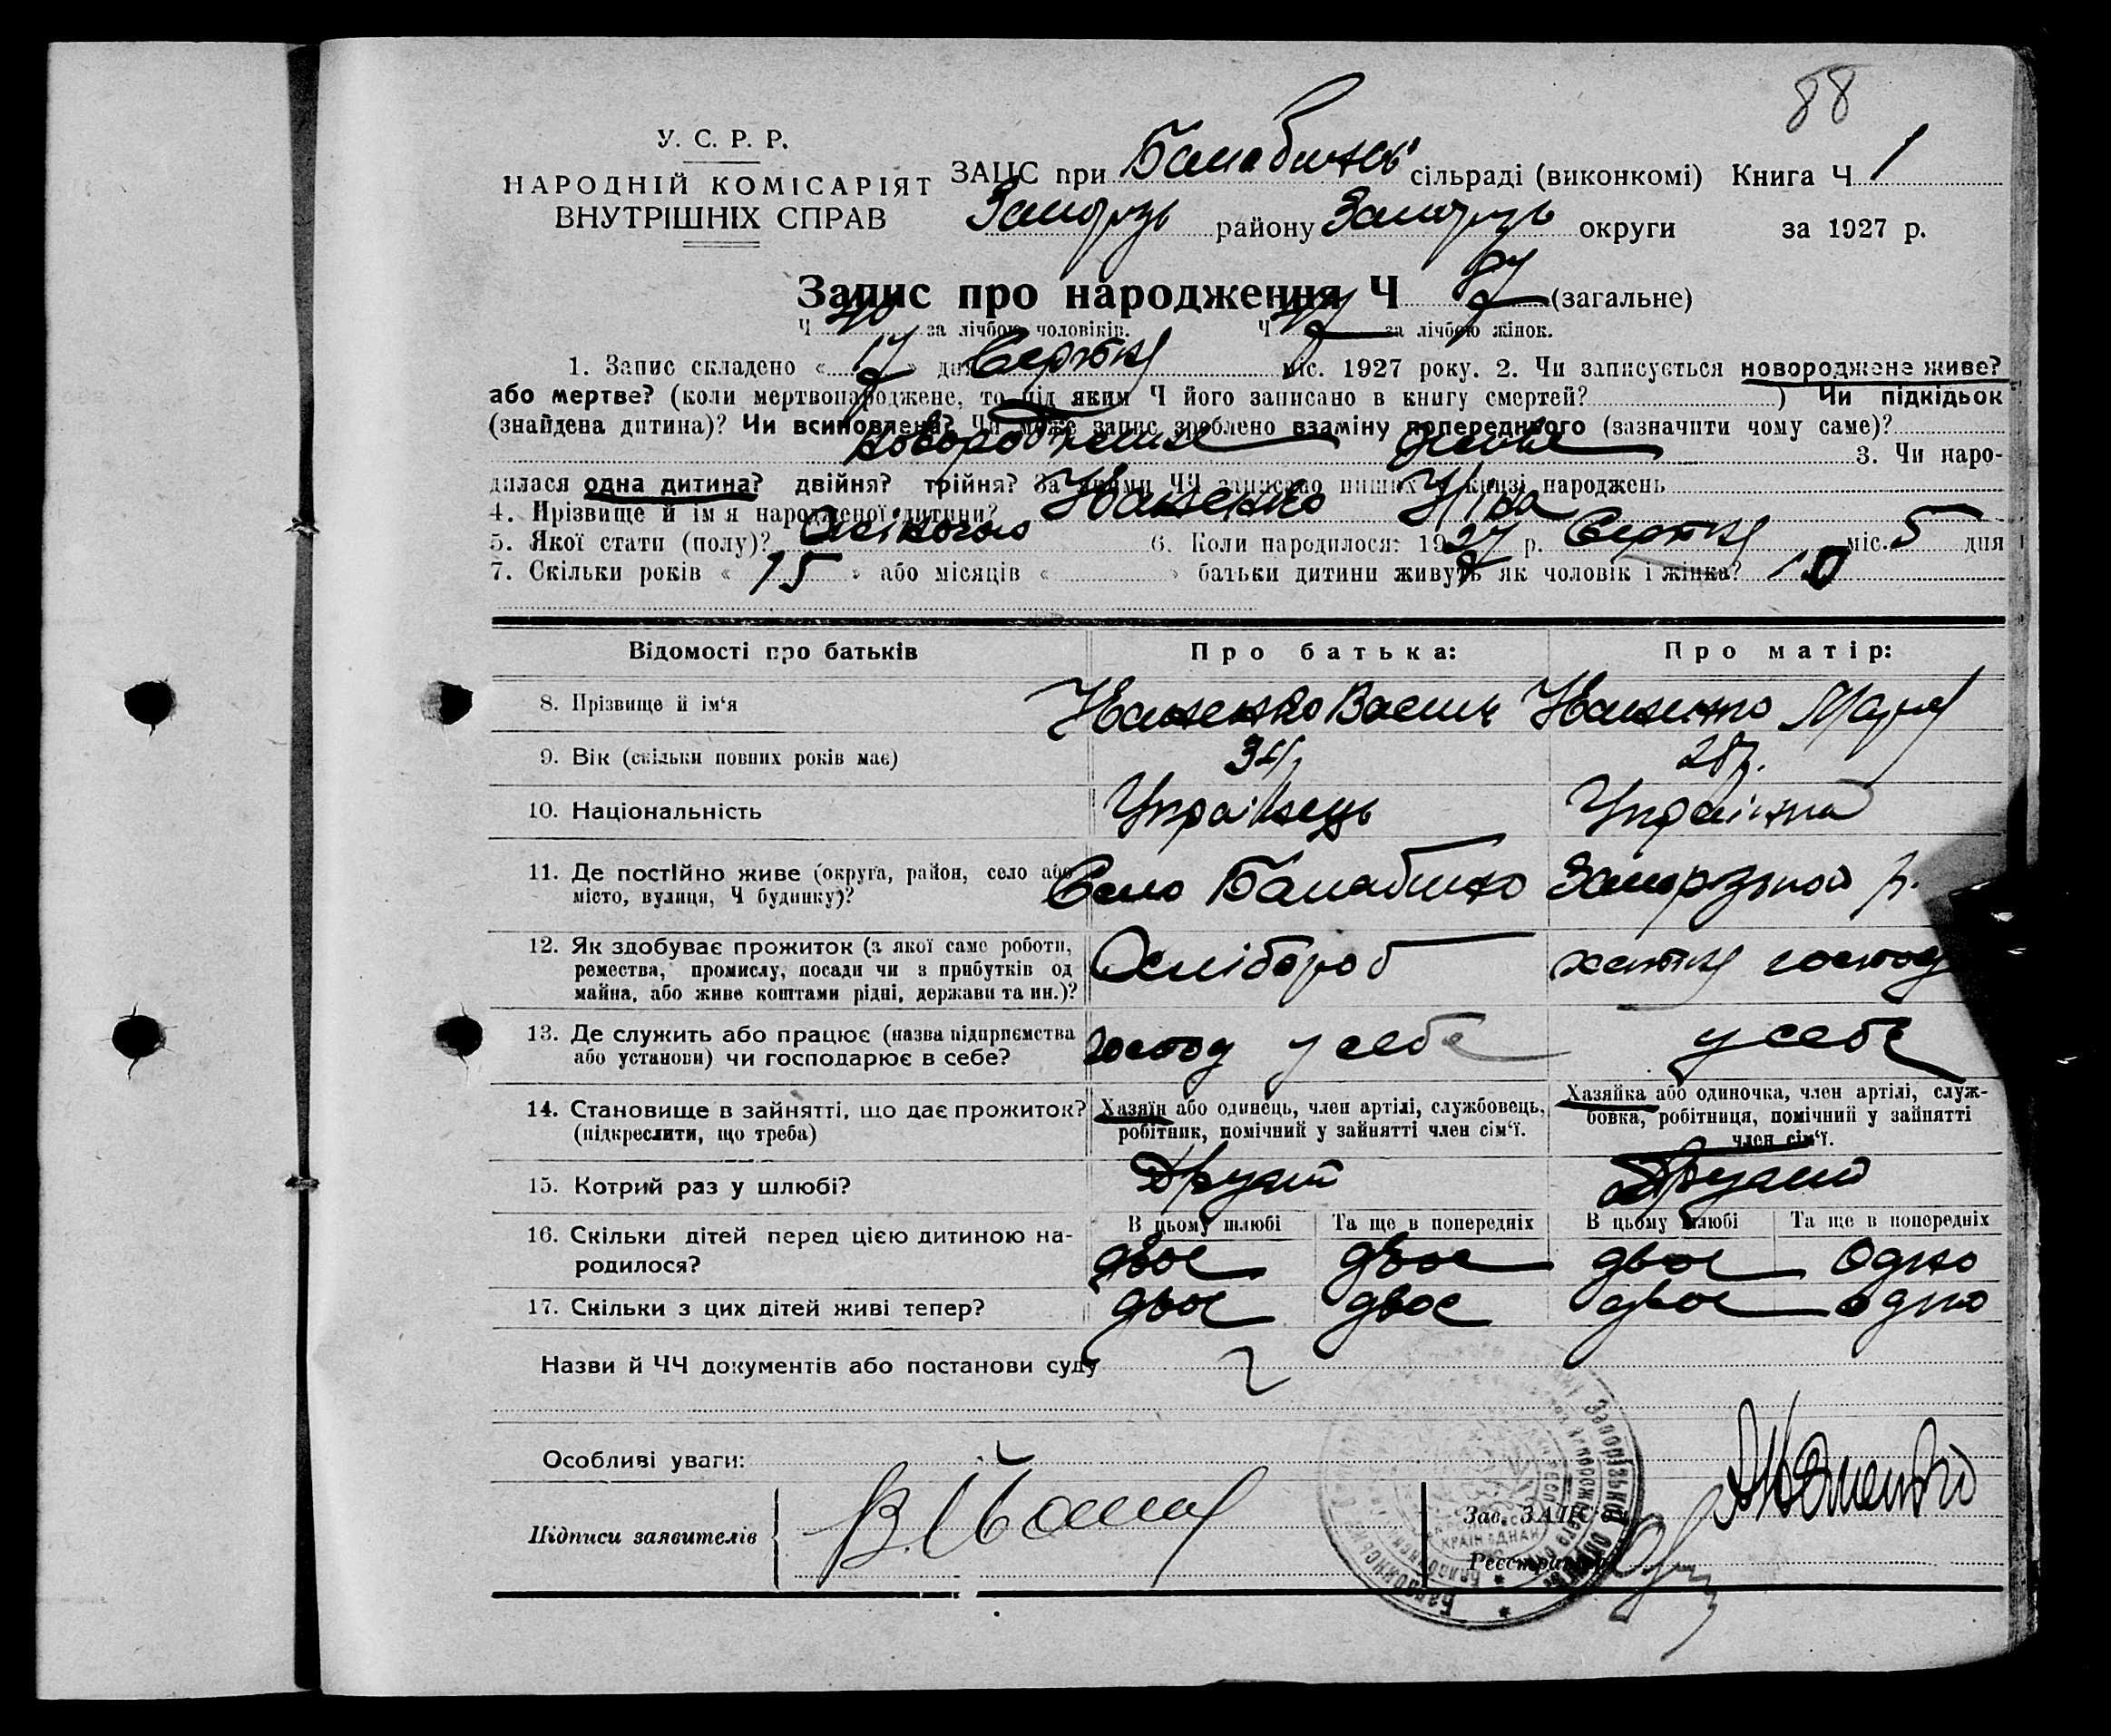 88
У. С. Р. Р.
НАРОДНІЙ КОМІСАРІЯТ
ВНУТРІШНІХ СПРАВ
ЗАЦС при Балабинсь сільраді (виконкомі) Книга Ч 1
Запорузь району Запорузь округи за 1927 р.
Запис про народження Ч 87 (загальне)
Ч 40 за лічбою чоловіків. Ч 47 за лічбою жінок.
1. Запис складено « 17 » дня Серпня міс. 1927 року. 2. Чи записується новороджене живе?
або мертве? (коли мертвонароджене, то під яким Ч його записано в книгу смертей? ) Чи підкідьок
(знайдена дитина)? Чи всиновлена? Чи може запис зроблено взаміну попереднього (зазначити чому саме)?
новорожденне живе 3. Чи наро-
дилася одна дитина? двійня? трійня? За якими ЧЧ записано инших у книзі народжень
4. Прізвище й ім'я народженої дитини? Іваненко Ніна
5. Якої стати (полу)? Жіночого 6. Коли народилося: 1927 р. Серпня міс. 5 дня
7. Скільки років « 15 » або місяців « » батьки дитини живуть як чоловік і жінка? 10
Відомості про батьків Про батька: Про матір:
8. Прізвище й ім'я Іваненко Василь Іваненко Марія
9. Вік (скільки повних років має) 34 28 р.
10. Національність Українець Українка
11. Де постійно живе (округа, район, село або Село Балабино р.
місто, вулиця, Ч будинку)?
12. Як здобуває прожиток (з якої саме роботи, Хлібороб хатня господ
ремества, промислу, посади чи з прибутків од
майна, або живе коштами рідні, держави та ин.)?
13. Де служить або працює (назва підприємства господ у себе у себе
або установи) чи господарює в себе?
14. Становище в зайнятті, що дає прожиток? Хазяїн або одинець, член артілі, службовець, Хазяйка або одиночка, член артілі, служ-
(підкреслити, що треба) робітник, помічний у зайнятті член сім'ї. бовка, робітниця, помічний у зайнятті
член сім'ї.
15. Котрий раз у шлюбі? Другий Другий
В цьому шлюбі Та ще в попередніх В цьому шлюбі Та ще в попередніх
16. Скільки дітей перед цією дитиною на- двоє двоє двоє одно
родилося?
17. Скільки з цих дітей живі тепер? двоє двоє двоє одно
Назви й ЧЧ документів або постанови суду
Особливі уваги:
Підписи заявителів
Зав. ЗАЦС'ом
Реєстратор